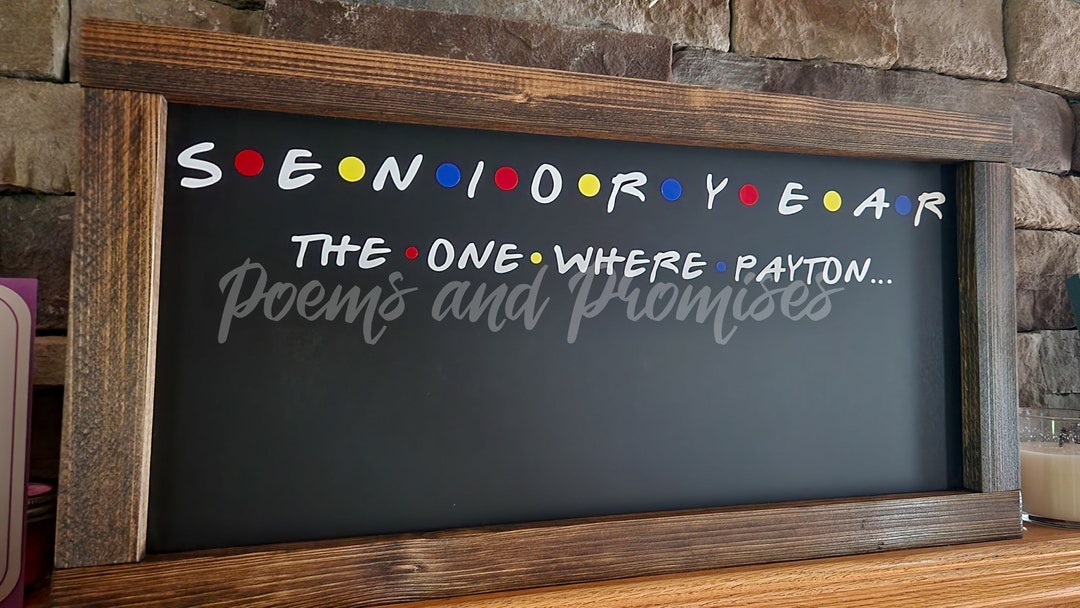 S•E•N•I•O•R• Y•E•A•R
THE • ONE • WHERE • PAYTON...
Poems and Promises